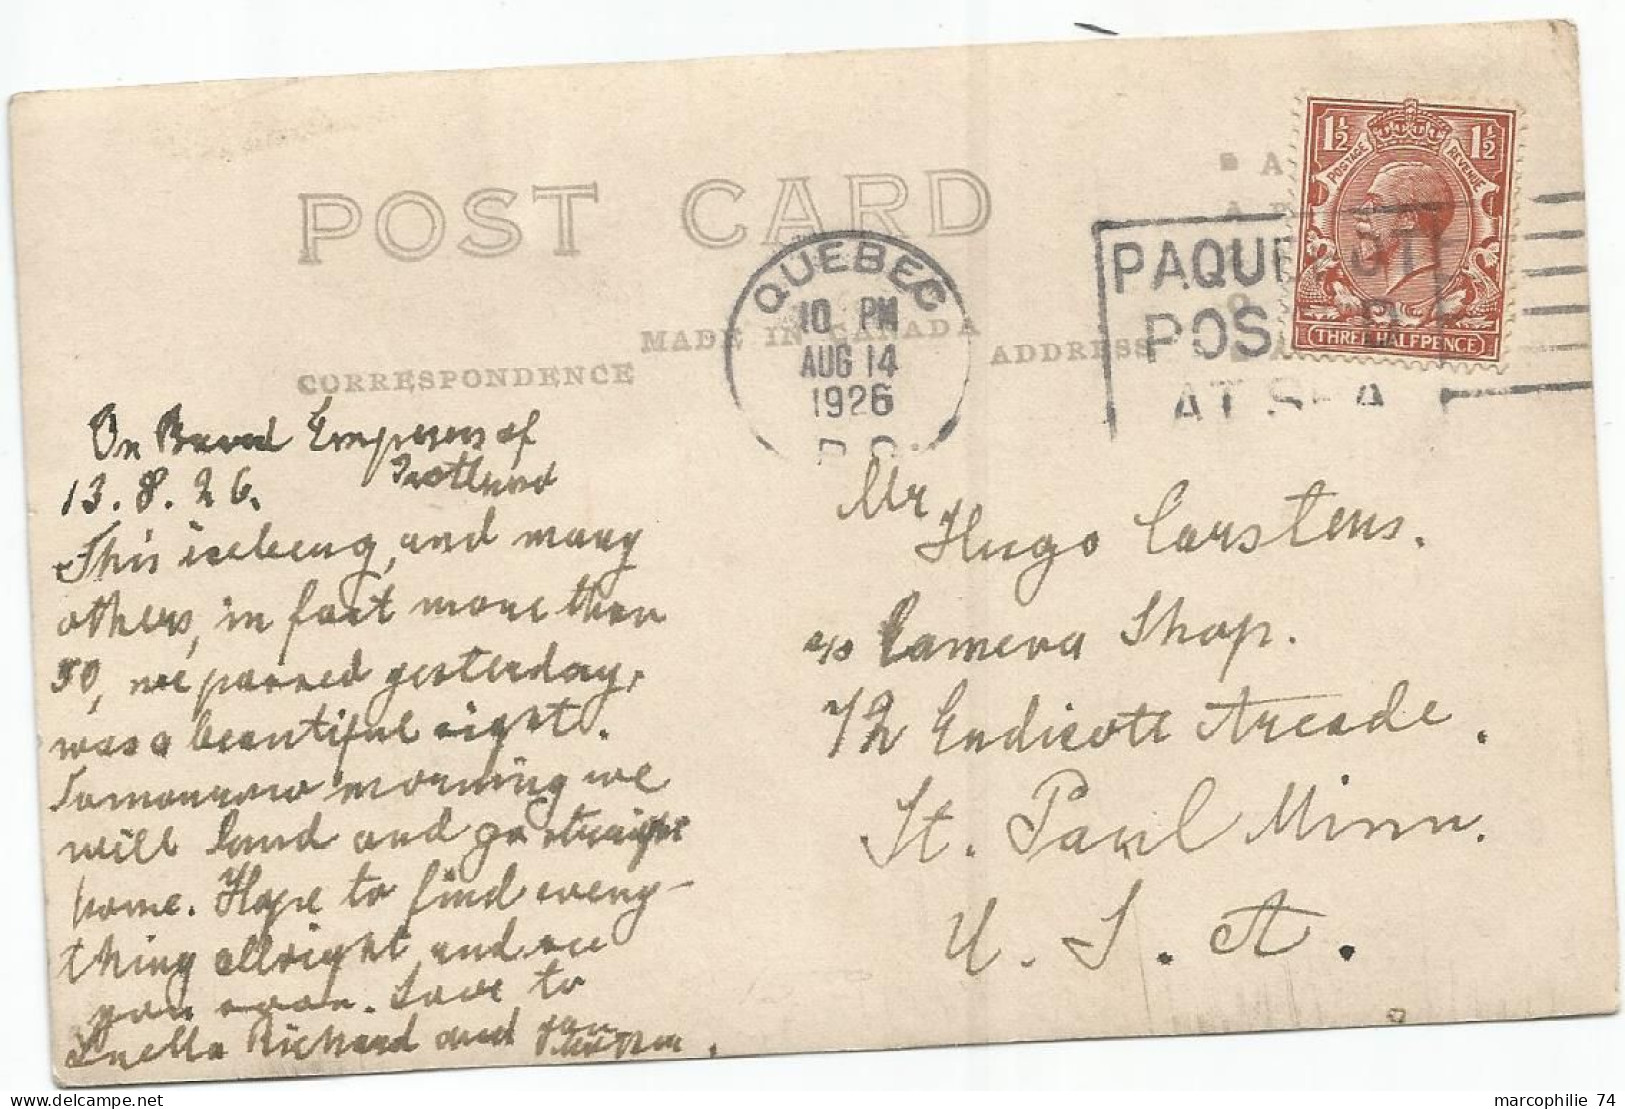 POST CARD
MADE IN CANADA
CORRESPONDENCE
ADDRESS
QUEBEC
10 PM
AUG 14
1926
P.Q.
1½ 1½
POSTAGE REVENUE
THREE HALFPENCE
PAQUEBOT
POSTED
AT SEA
On Board Empress of
Scotland
13.8.26.
This iceberg, and many
others, in fact more than
50, we passed yesterday,
was a beautiful sight.
Tomorrow morning we
will land and go straight
home. Hope to find every-
thing allright and see
you soon. Love to
Luella Richard and
Mr
Hugo Carstens.
c/o Camera Shop.
1/2 Endicott Arcade.
St. Paul Minn.
U. S. A.
marcophilie 74